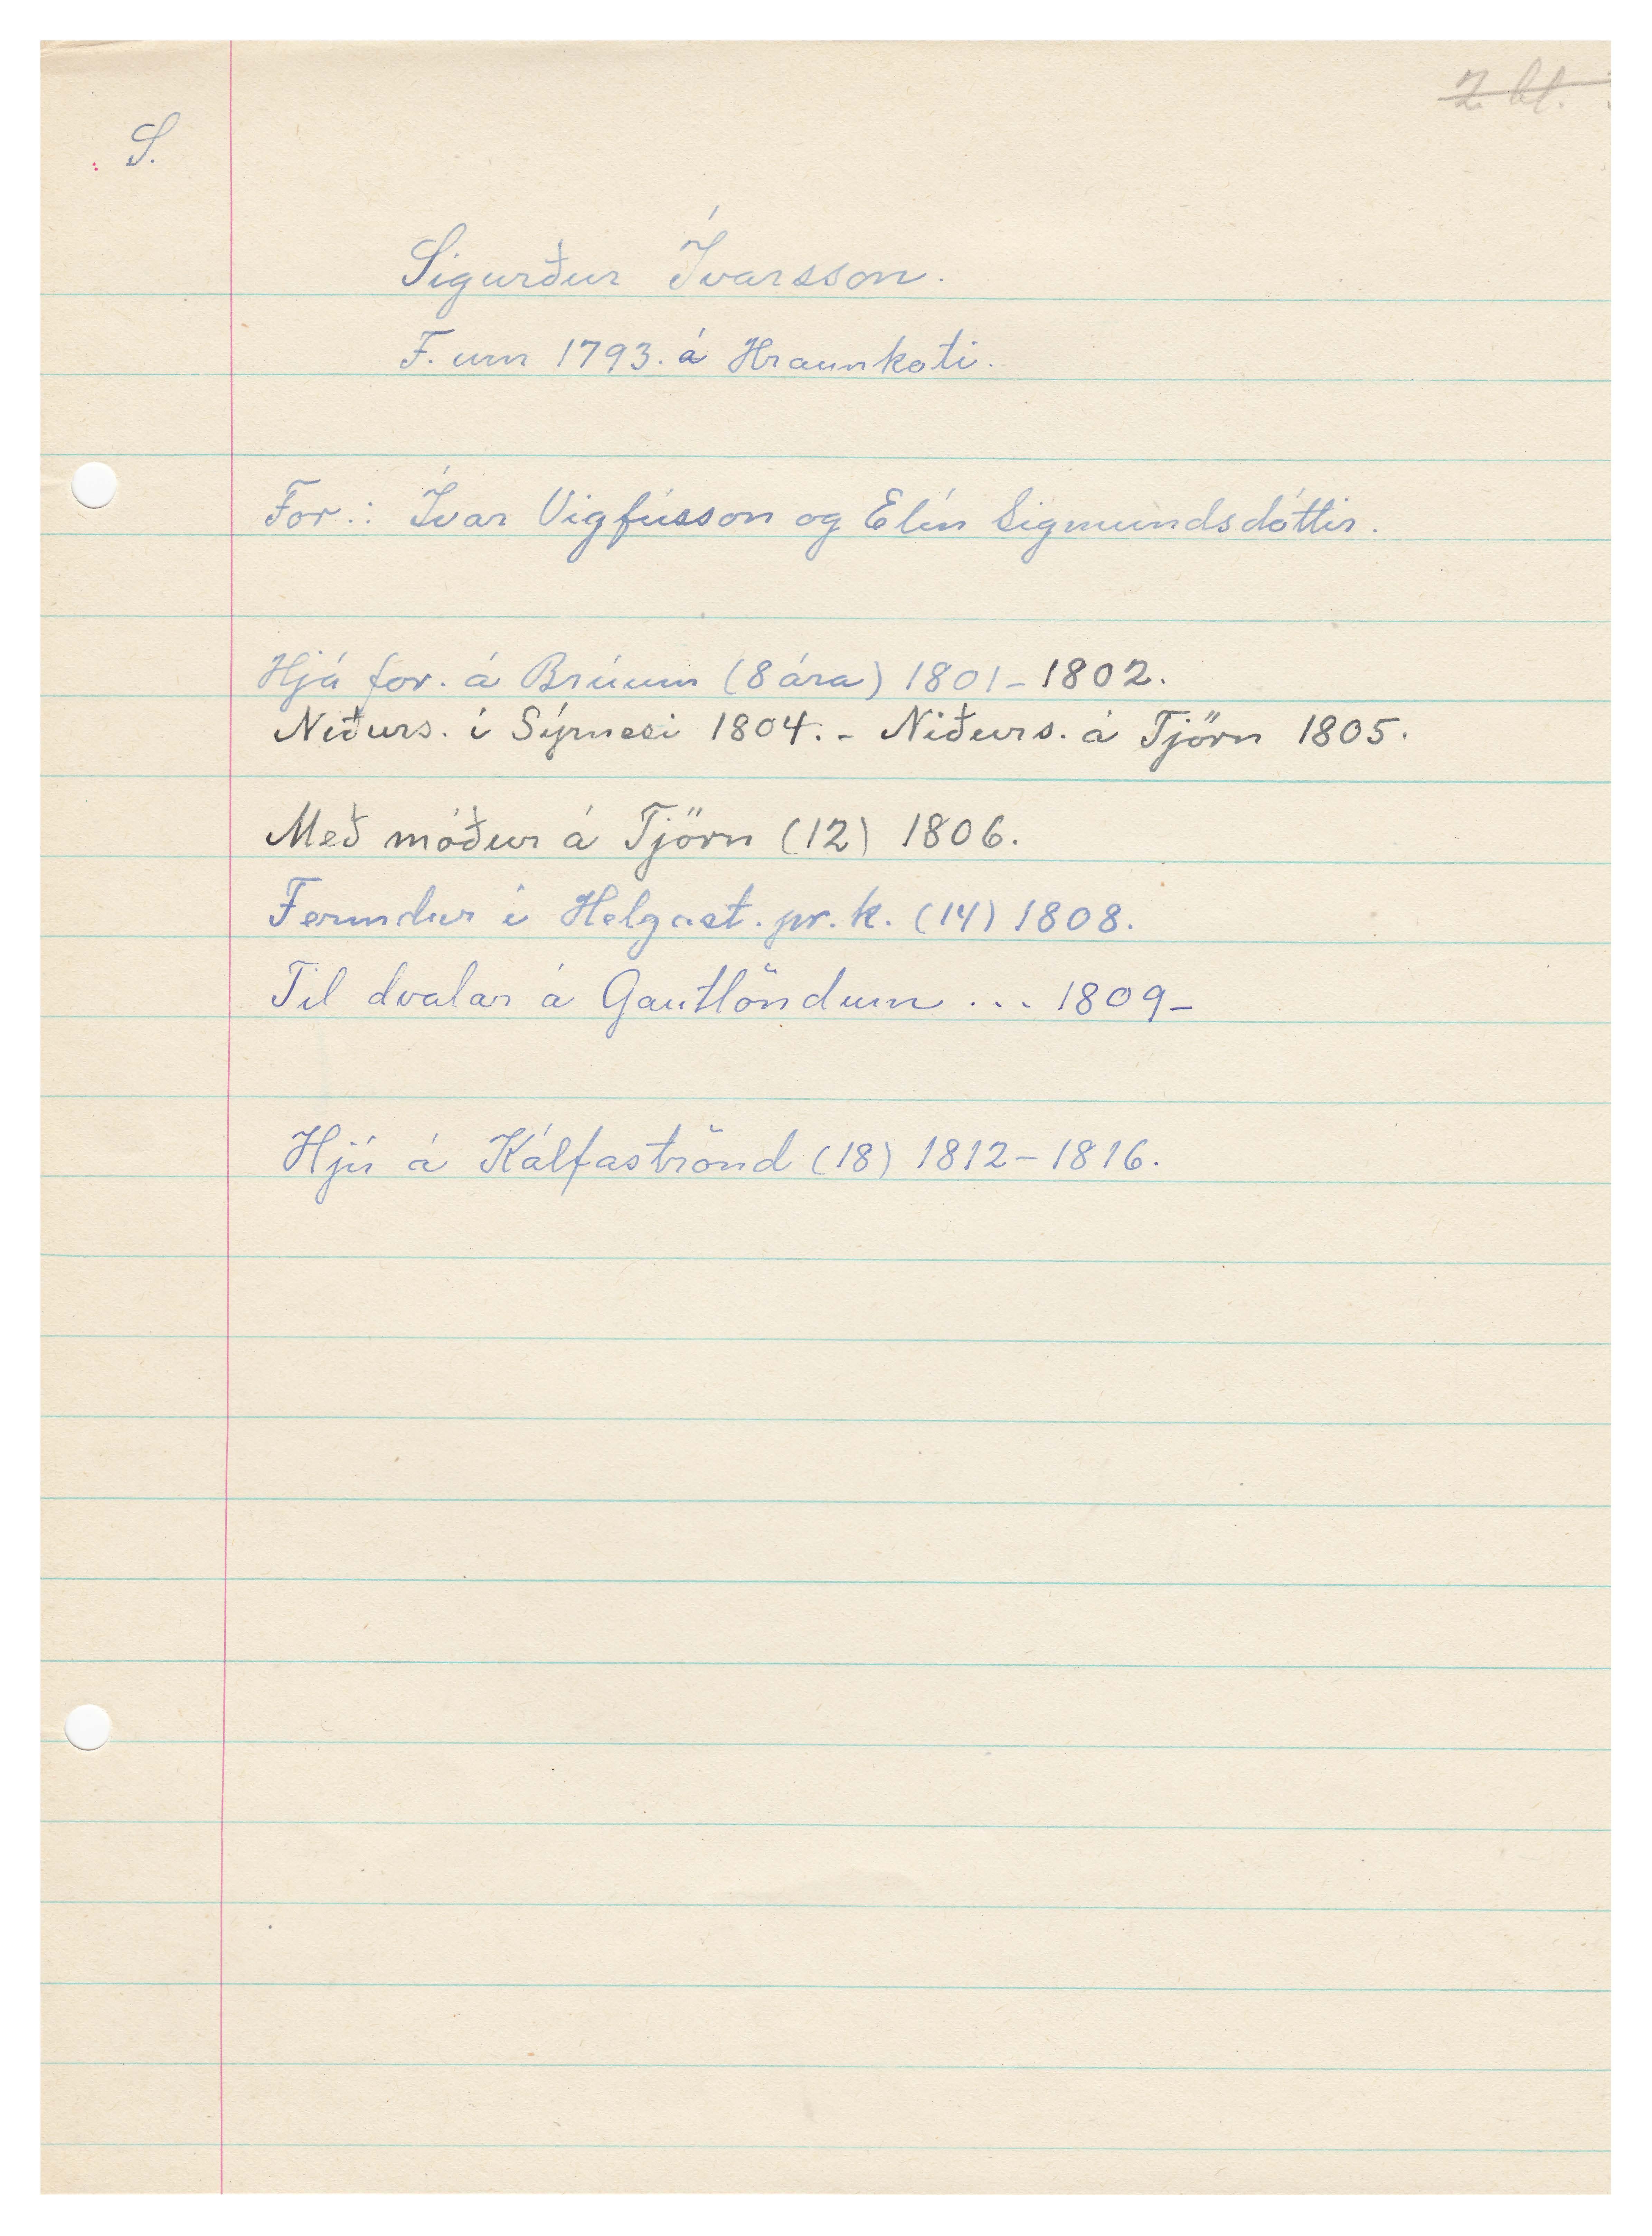 2. bl.
S.
Sigurður Ívarsson.
F. um 1793. á Hraunkoti.
For.: Ívar Vigfússon og Elín Sigmundsdóttir.
Hjá for. á Brúum (8 ára) 1801-1802.
Niðurs. í Sýrnesi 1804. - Niðurs. á Tjörn 1805.
Með móður á Tjörn (12) 1806.
Fermdur í Helgast. pr. k. (14) 1808.
Til dvalar á Gautlöndum ... 1809-
Hjú á Kálfaströnd (18) 1812-1816.